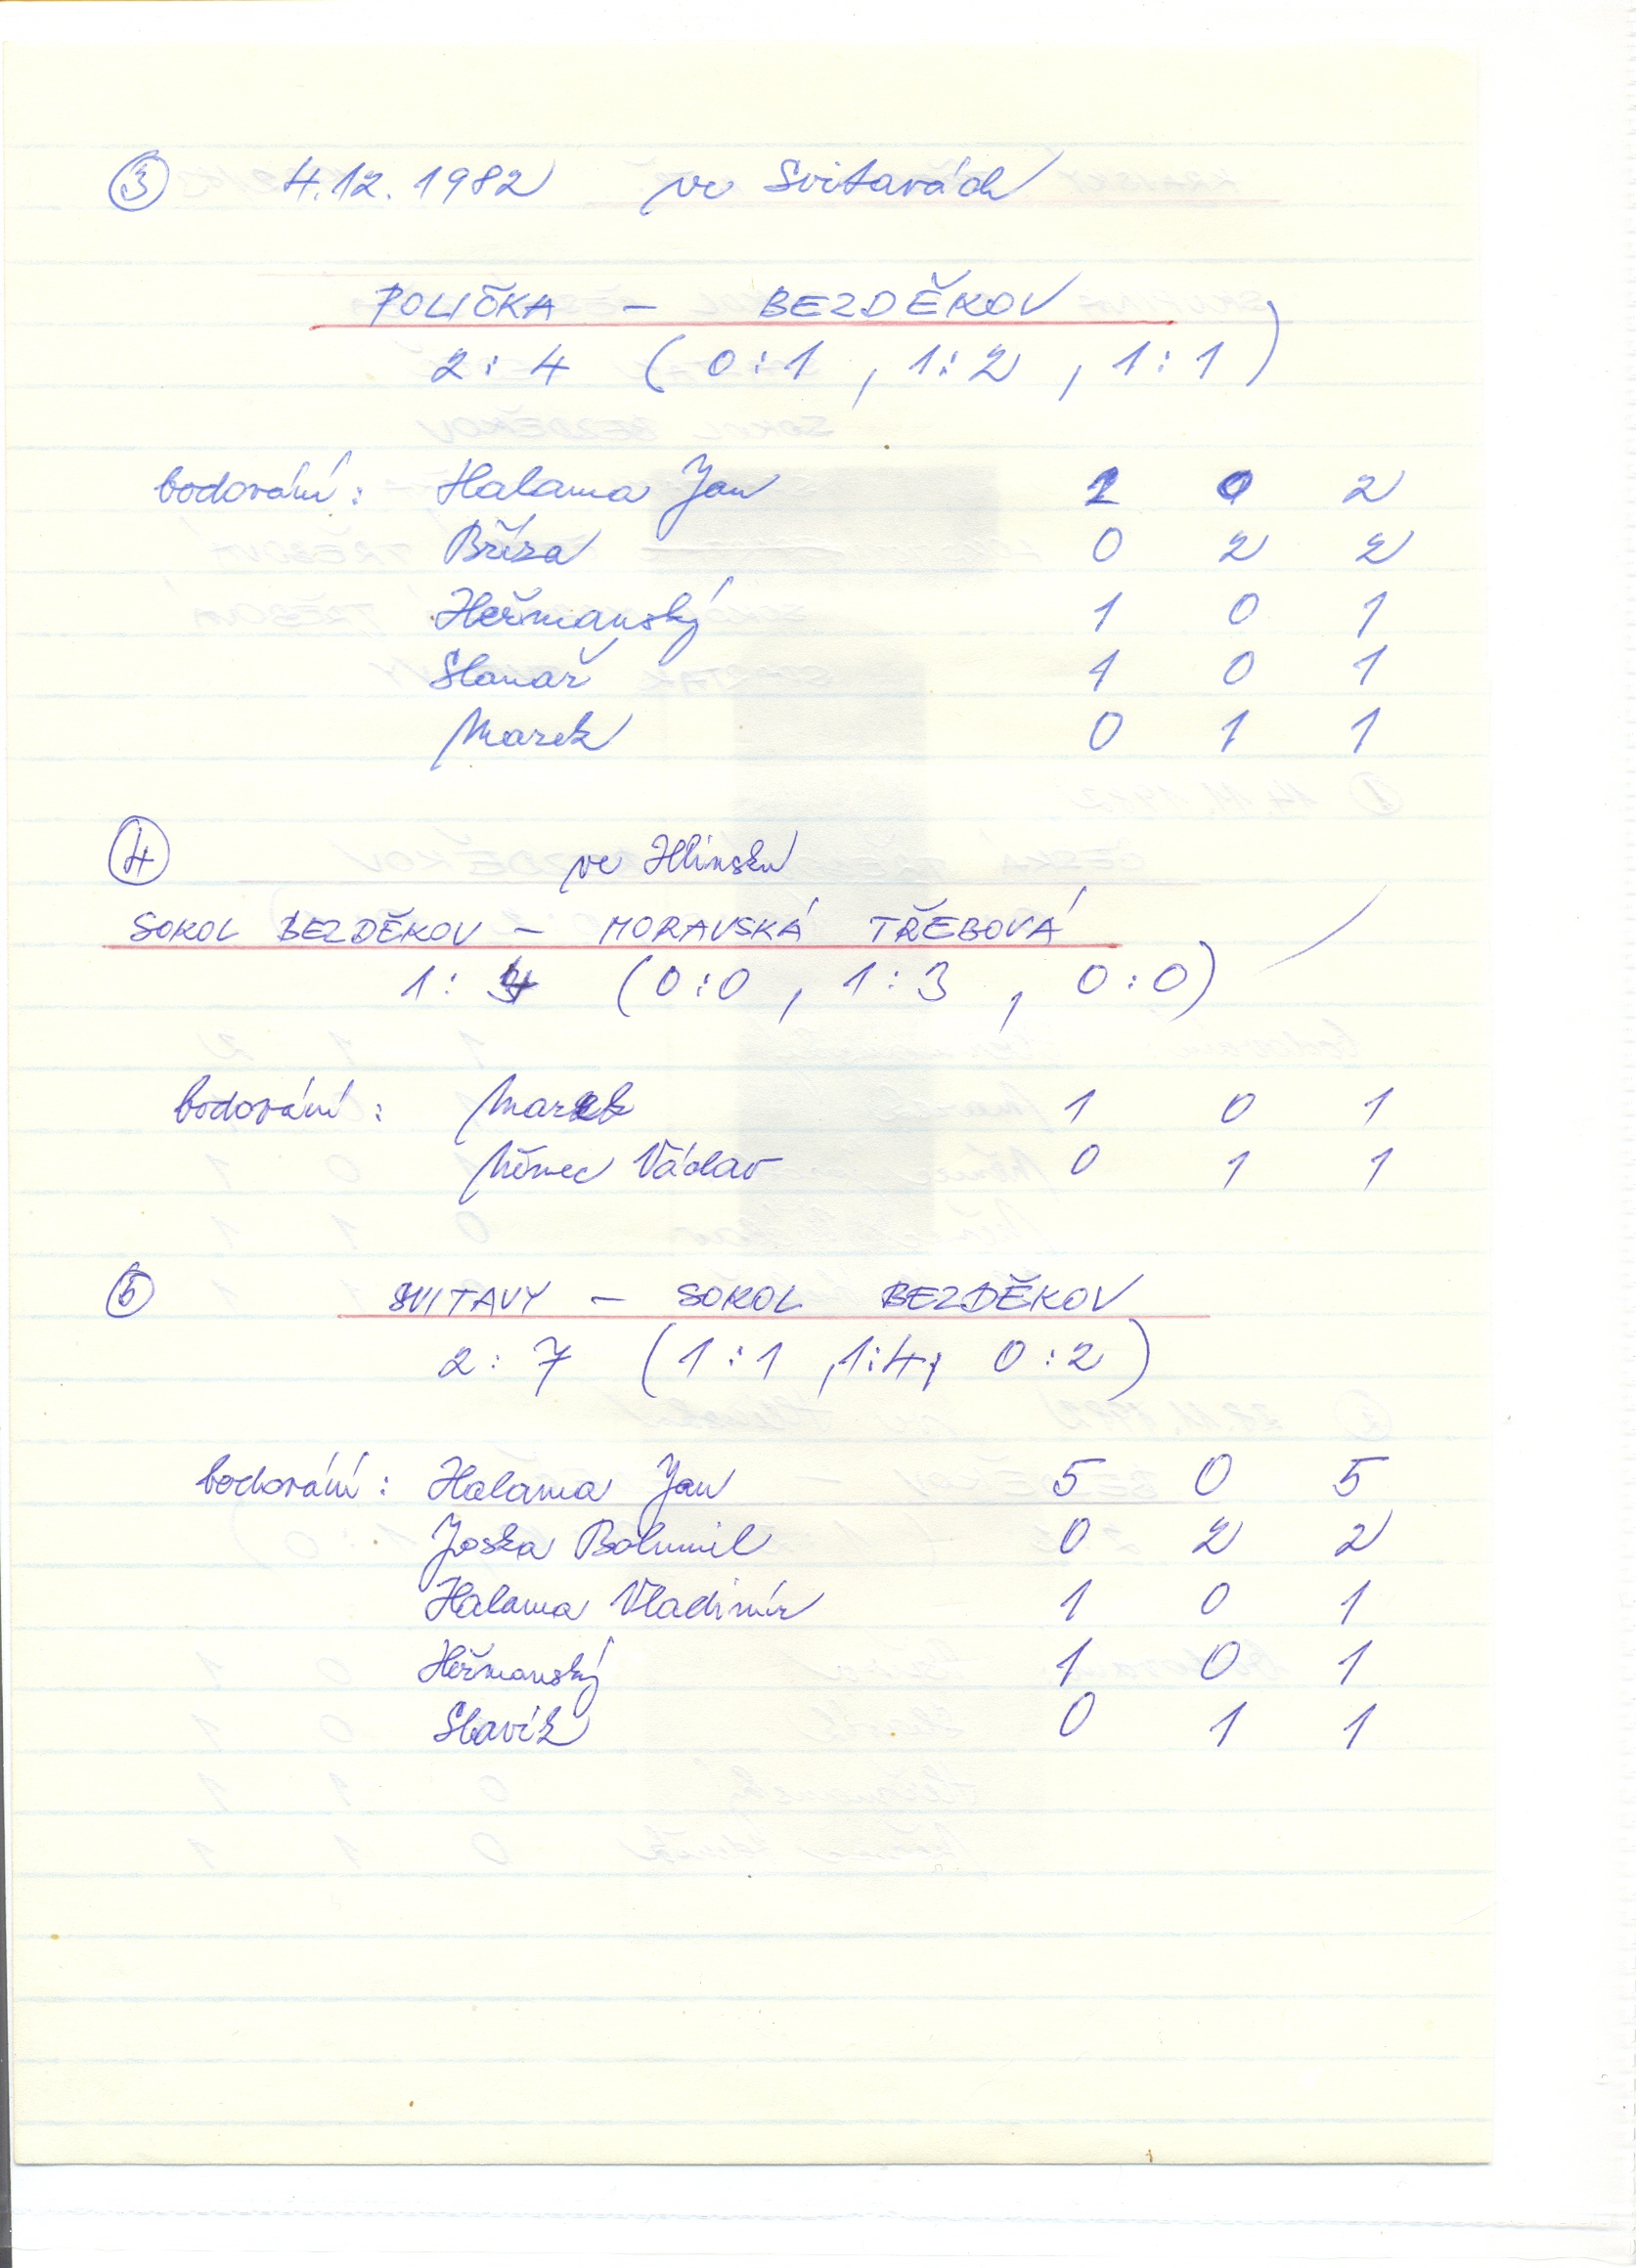 ③ 4.12.1982 ve Svitavách
POLIČKA - BEZDĚKOV
2:4 (0:1, 1:2, 1:1)
bodování: Halama Jan 2 0 2
Bříza 0 2 2
Heřmanský 1 0 1
Slanař 1 0 1
Marek 0 1 1
④ ve Hlinsku
SOKOL BEZDĚKOV - MORAVSKÁ TŘEBOVÁ
1:3 (0:0, 1:3, 0:0)
bodování: Marek 1 0 1
Němec Václav 0 1 1
⑤ SVITAVY - SOKOL BEZDĚKOV
2:7 (1:1, 1:4, 0:2)
bodování: Halama Jan 5 0 5
Joska Bohumil 0 2 2
Halama Vladimír 1 0 1
Heřmanský 1 0 1
Slavík 0 1 1